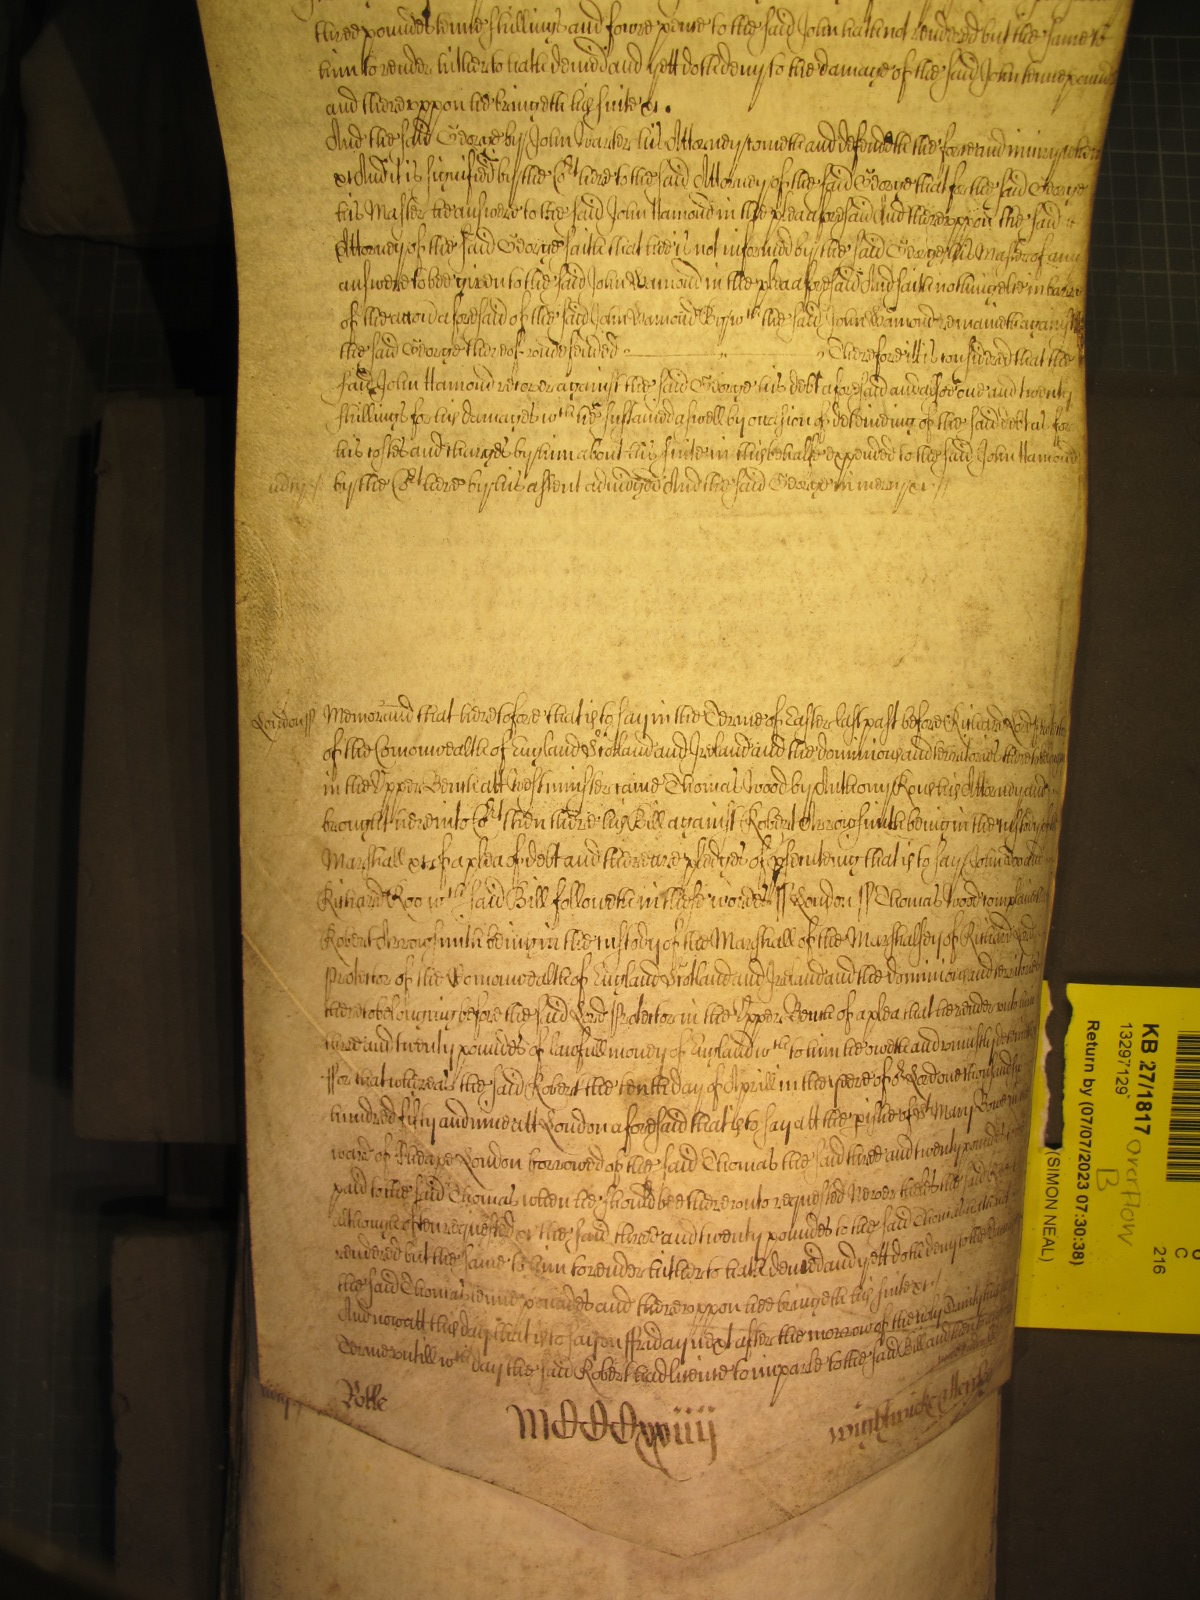 three poundes tenne shillings and foure pence to the said John hath not rendered but the same to
him to render hitherto hath denied and yett doth deny to the damage of the said John tenne pounds
and thereuppon hee bringeth his suite &c.
And the said George by John Barker his Attorney cometh and defendeth the force and iniury when
&c And it is signified by the Cort here to the said Attorney of the said George that for the said George
his Master he answere to the said John Hamond in the plea aforesaid And thereuppon the said
Attorney of the said George saith that hee is not informed by the said George his Master of any
answere to bee given to the said John Hamond in the plea aforesaid And saith nothing else in barre
of the accion aforesaid of the said John Hamond By wch the said John Hamond remaineth against
the said George thereof undefended Therefore itt is considered that the
said John Hamond recover against the said George his debt aforesaid and alsoe one and twenty
shillings for his damages wch he sustained aswell by occasion of deteining of the said debt as for
his costes and charges by him about his suite in this behalfe expended to the said John Hamond
by the Cort here by his assent adiudged And the said George in mercy &c
London ss Memorand that heretofore that is to say in the Terme of Easter last past before Richard Lord Protector
of the Comonwealth of England Scotland and Ireland and the dominions and territories thereto belonging
in the Upper Bench att Westminster came Thomas Wood by Anthony Rous his Attorney and
brought here into Cort then there his Bill against Robert Arrowsmith being in the custody of the
Marshall &c of a plea of debt and there are pledges of prosecuting that is to say John Doo and
Richard Roo wch said Bill followeth in these wordes ss London ss Thomas Wood complaineth
Robert Arrowsmith being in the custody of the Marshall of the Marshalsey of Richard Lord
Protector of the Comonwealth of England Scotland and Ireland and the dominions and territories
thereto belonging before the said Lord Protector in the Upper Bench of a plea that he render unto him
three and twenty poundes of lawfull money of England wch to him he oweth and uniustly deteineth
For that whereas the said Robert the tenth day of Aprill in the yeare of or Lord one thousand six
hundred fifty and nine att London aforesaid that is to say att the pishe of St Mary Bowe in the
ward of Cheape London borrowed of the said Thomas the said three and twenty poundes
paid to the said Thomas when he should bee thereunto requested Neverthelesse the said Robert
although often requested &c the said three and twenty poundes to the said Thomas hath not
rendered but the same to him to render hitherto hath denied and yett doth deny to the damage
the said Thomas tenne poundes and thereuppon hee bringeth his suite &c
And now att this day that is to say on Friday next after the morrow of the holy Trinity this same
Terme untill wch day the said Robert had licence to imparle to the said Bill and then to
Rolle MCCCCxxiiij Wightwicke
KB 27/1817 Overflow B
13297129
Return by (07/07/2023 07:30:38)
(SIMON NEAL)
C
216